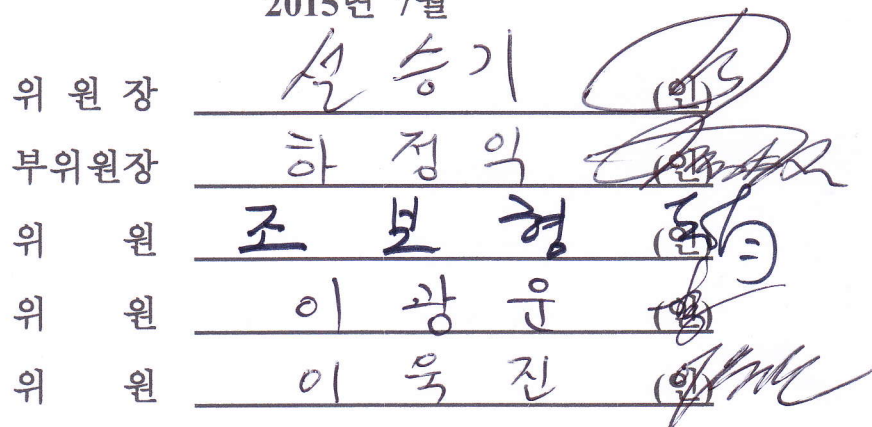 2015년 7월
위 원 장 설 승 기 (인)
부위원장 하 정 익 (인)
위 원 조 보 형 (인)
위 원 이 광 운 (인)
위 원 이 욱 진 (인)